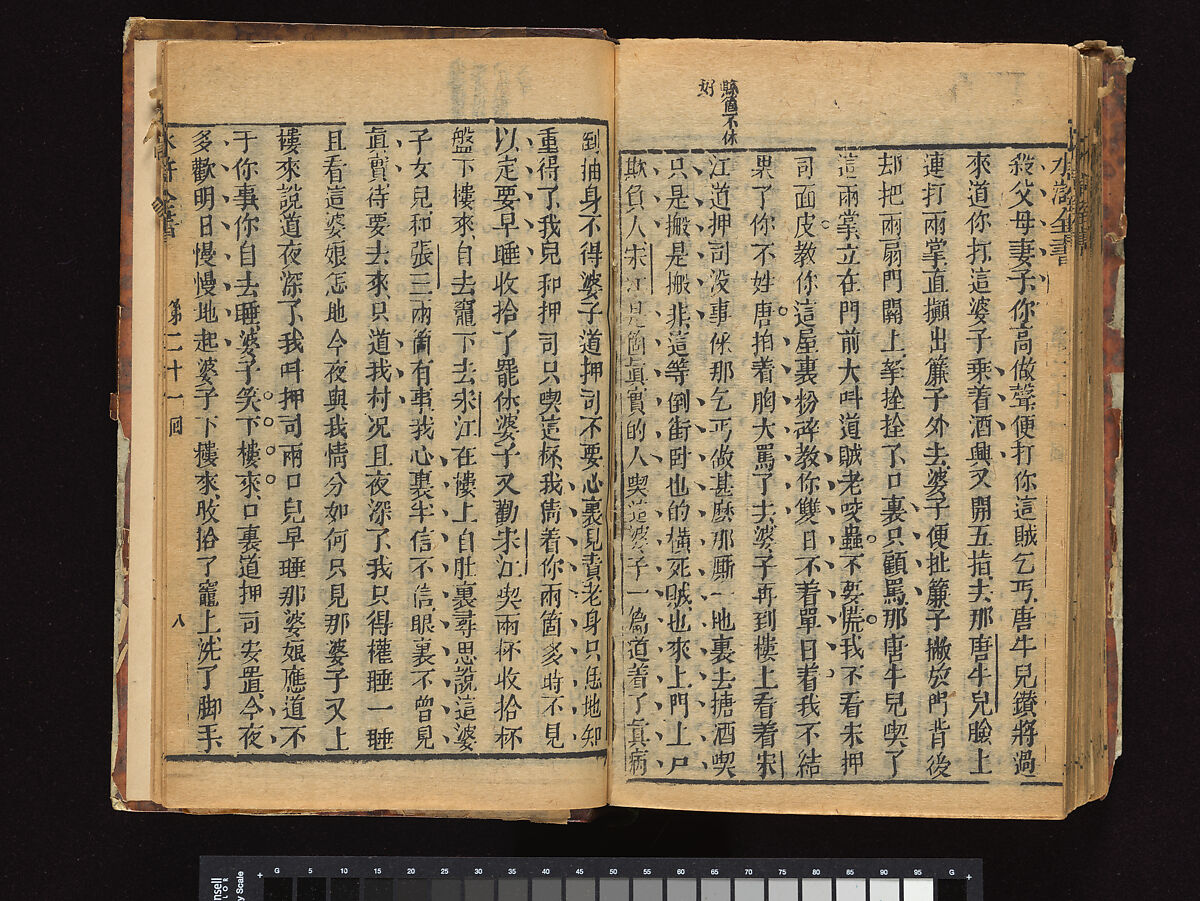 縣官不休
好
水滸全書
殺父母妻子你高做聲便打你這賊乞丐唐牛兒鑽將過
來道你打這婆子乘着酒興叉開五指去那唐牛兒臉上
連打兩掌直攧出簾子外去婆子便扯簾子撇放門背後
却把兩扇門關上拏拴拴了口裏只顧罵那唐牛兒喫了
這兩掌立在門前大叫道賊老咬蟲不要慌我不看宋押
司面皮教你這屋裏粉碎教你雙日不着單日着我不結
果了你不姓唐拍着胸大罵了去婆子再到樓上看着宋
江道押司没事倸那乞丐做甚麼那厮一地裏去搪酒喫
只是搬是搬非這等倒街卧巷的橫死賊也來上門上戶
欺負人宋江是箇眞實的人喫這婆子一篇道着了眞病
到抽身不得婆子道押司不要心裏見責老身只恁地知
重得了我兒和押司只喫這杯我猜着你兩箇多時不見
以定要早睡收拾了罷休婆子又勸宋江喫兩杯收拾杯
盤下樓來自去竈下去宋江在樓上自肚裏尋思說這婆
子女兒和張三兩箇有事我心裏半信不信眼裏不曾見
眞實待要去來只道我村况且夜深了我只得權睡一睡
且看這婆娘怎地今夜與我情分如何只見那婆子又上
樓來說道夜深了我叫押司兩口兒早睡那婆娘應道不
干你事你自去睡婆子笑下樓來口裏道押司安置今夜
多歡明日慢慢地起婆子下樓來收拾了竈上洗了脚手
水滸全書
第二十一回
八
G 5 10 15 20 25 30 35 40 45 50 55 60 65 70 75 80 85 90 95 G